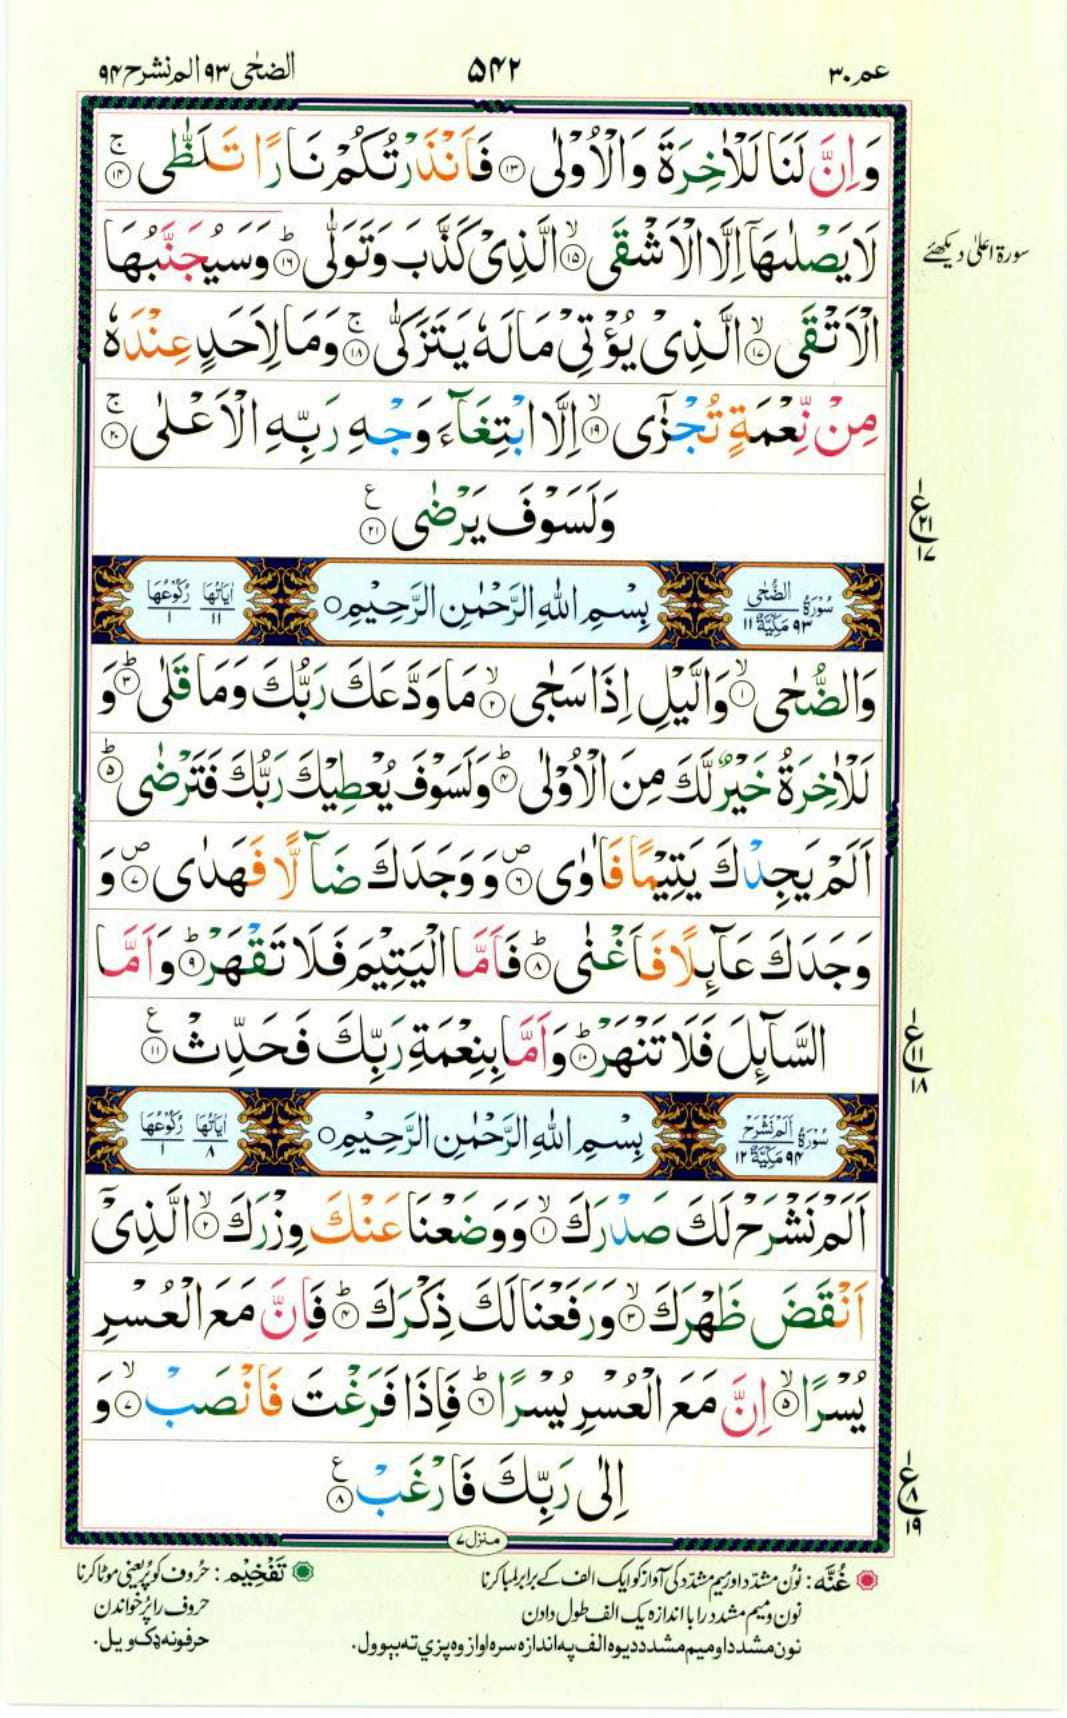 عم ۳۰
۵۴۲
الضحٰی ۹۳ الم نشرح ۹۴
وَاِنَّ لَنَا لَلْاٰخِرَةَ وَالْاُوْلٰی ۝۱۳ فَاَنْذَرْتُكُمْ نَارًا تَلَظّٰی ۚ۝۱۴
لَا يَصْلٰىهَاۤ اِلَّا الْاَشْقَی ۙ۝۱۵ الَّذِیْ كَذَّبَ وَتَوَلّٰی ؕ۝۱۶ وَسَيُجَنَّبُهَا
سورة اعلیٰ دیکھئے
الْاَتْقَی ۙ۝۱۷ الَّذِیْ يُؤْتِیْ مَالَهٗ يَتَزَكّٰی ۚ۝۱۸ وَمَا لِاَحَدٍ عِنْدَهٗ
مِنْ نِّعْمَةٍ تُجْزٰۤی ۙ۝۱۹ اِلَّا ابْتِغَآءَ وَجْهِ رَبِّهِ الْاَعْلٰی ۚ۝۲۰
وَلَسَوْفَ يَرْضٰی ۝۲۱ ع
ع ۱ ۲۱ ۱۷
سُوْرَةُ الضُّحٰی ۹۳ مَكِّيَّةٌ ۱۱
بِسْمِ اللّٰهِ الرَّحْمٰنِ الرَّحِيْمِ ۝
اٰيَاتُهَا ۱۱ رُكُوْعُهَا ۱
وَالضُّحٰی ۙ۝۱ وَالَّيْلِ اِذَا سَجٰی ۙ۝۲ مَا وَدَّعَكَ رَبُّكَ وَمَا قَلٰی ؕ۝۳ وَ
لَلْاٰخِرَةُ خَيْرٌ لَّكَ مِنَ الْاُوْلٰی ؕ۝۴ وَلَسَوْفَ يُعْطِيْكَ رَبُّكَ فَتَرْضٰی ؕ۝۵
اَلَمْ يَجِدْكَ يَتِيْمًا فَاٰوٰی ۪۝۶ وَوَجَدَكَ ضَآلًّا فَهَدٰی ۪۝۷ وَ
وَجَدَكَ عَآئِلًا فَاَغْنٰی ؕ۝۸ فَاَمَّا الْيَتِيْمَ فَلَا تَقْهَرْ ؕ۝۹ وَاَمَّا
السَّآئِلَ فَلَا تَنْهَرْ ؕ۝۱۰ وَاَمَّا بِنِعْمَةِ رَبِّكَ فَحَدِّثْ ۝۱۱ ع
ع ۱ ۱۱ ۱۸
سُوْرَةُ اَلَمْ نَشْرَحْ ۹۴ مَكِّيَّةٌ ۱۲
بِسْمِ اللّٰهِ الرَّحْمٰنِ الرَّحِيْمِ ۝
اٰيَاتُهَا ۸ رُكُوْعُهَا ۱
اَلَمْ نَشْرَحْ لَكَ صَدْرَكَ ۙ۝۱ وَوَضَعْنَا عَنْكَ وِزْرَكَ ۙ۝۲ الَّذِیْۤ
اَنْقَضَ ظَهْرَكَ ۙ۝۳ وَرَفَعْنَا لَكَ ذِكْرَكَ ؕ۝۴ فَاِنَّ مَعَ الْعُسْرِ
يُسْرًا ۙ۝۵ اِنَّ مَعَ الْعُسْرِ يُسْرًا ؕ۝۶ فَاِذَا فَرَغْتَ فَانْصَبْ ۙ۝۷ وَ
اِلٰی رَبِّكَ فَارْغَبْ ۝۸ ع
ع ۱ ۸ ۱۹
منزل ۷
غُنَّه : نُون مشدّد اور میم مشدّد کی آواز کو ایک الف کے برابر لمبا کرنا
نون و میم مشدد را با اندازه یک الف طول دادن
نون مشدد او میم مشدد دیوه الف په اندازه سره اواز وه پزي ته بېوول.
تَفْخِیْم : حُروف کو پُر یعنی موٹا کرنا
حروف را پُر خواندن
حرفونه ډک ویل.